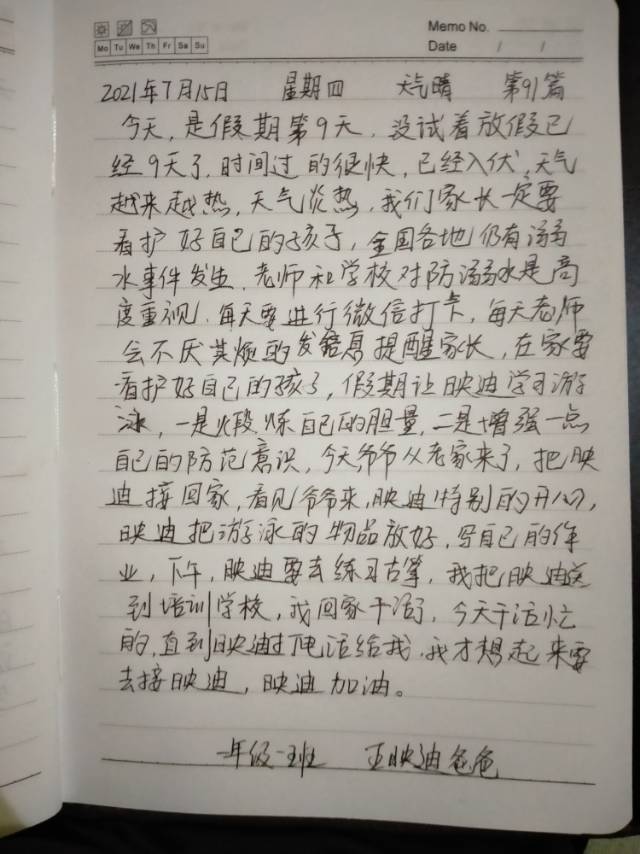 Memo No.
Mo Tu We Th Fr Sa Su
Date / /
2021年7月15日 星期四 天气晴 第91篇
今天,是假期第9天,没试着放假已
经9天了,时间过的很快,已经入伏,天气
越来越热,天气炎热,我们家长一定要
看护好自己的孩子,全国各地仍有溺
水事件发生,老师和学校对防溺水是高
度重视,每天要进行微信打卡,每天老师
会不厌其烦的发信息提醒家长,在家要
看护好自己的孩子,假期让映迪学习游
泳,一是煅炼自己的胆量,二是增强一点
自己的防范意识,今天爷爷从老家来了,把映
迪接回家,看见爷爷来,映迪特别的开心,
映迪把游泳的物品放好,写自己的作
业,下午,映迪要去练习古筝,我把映迪送
到培训学校,我回家干活了,今天干活忙
的,直到映迪打电话给我,我才想起来要
去接映迪,映迪加油。
一年级一班 王映迪爸爸